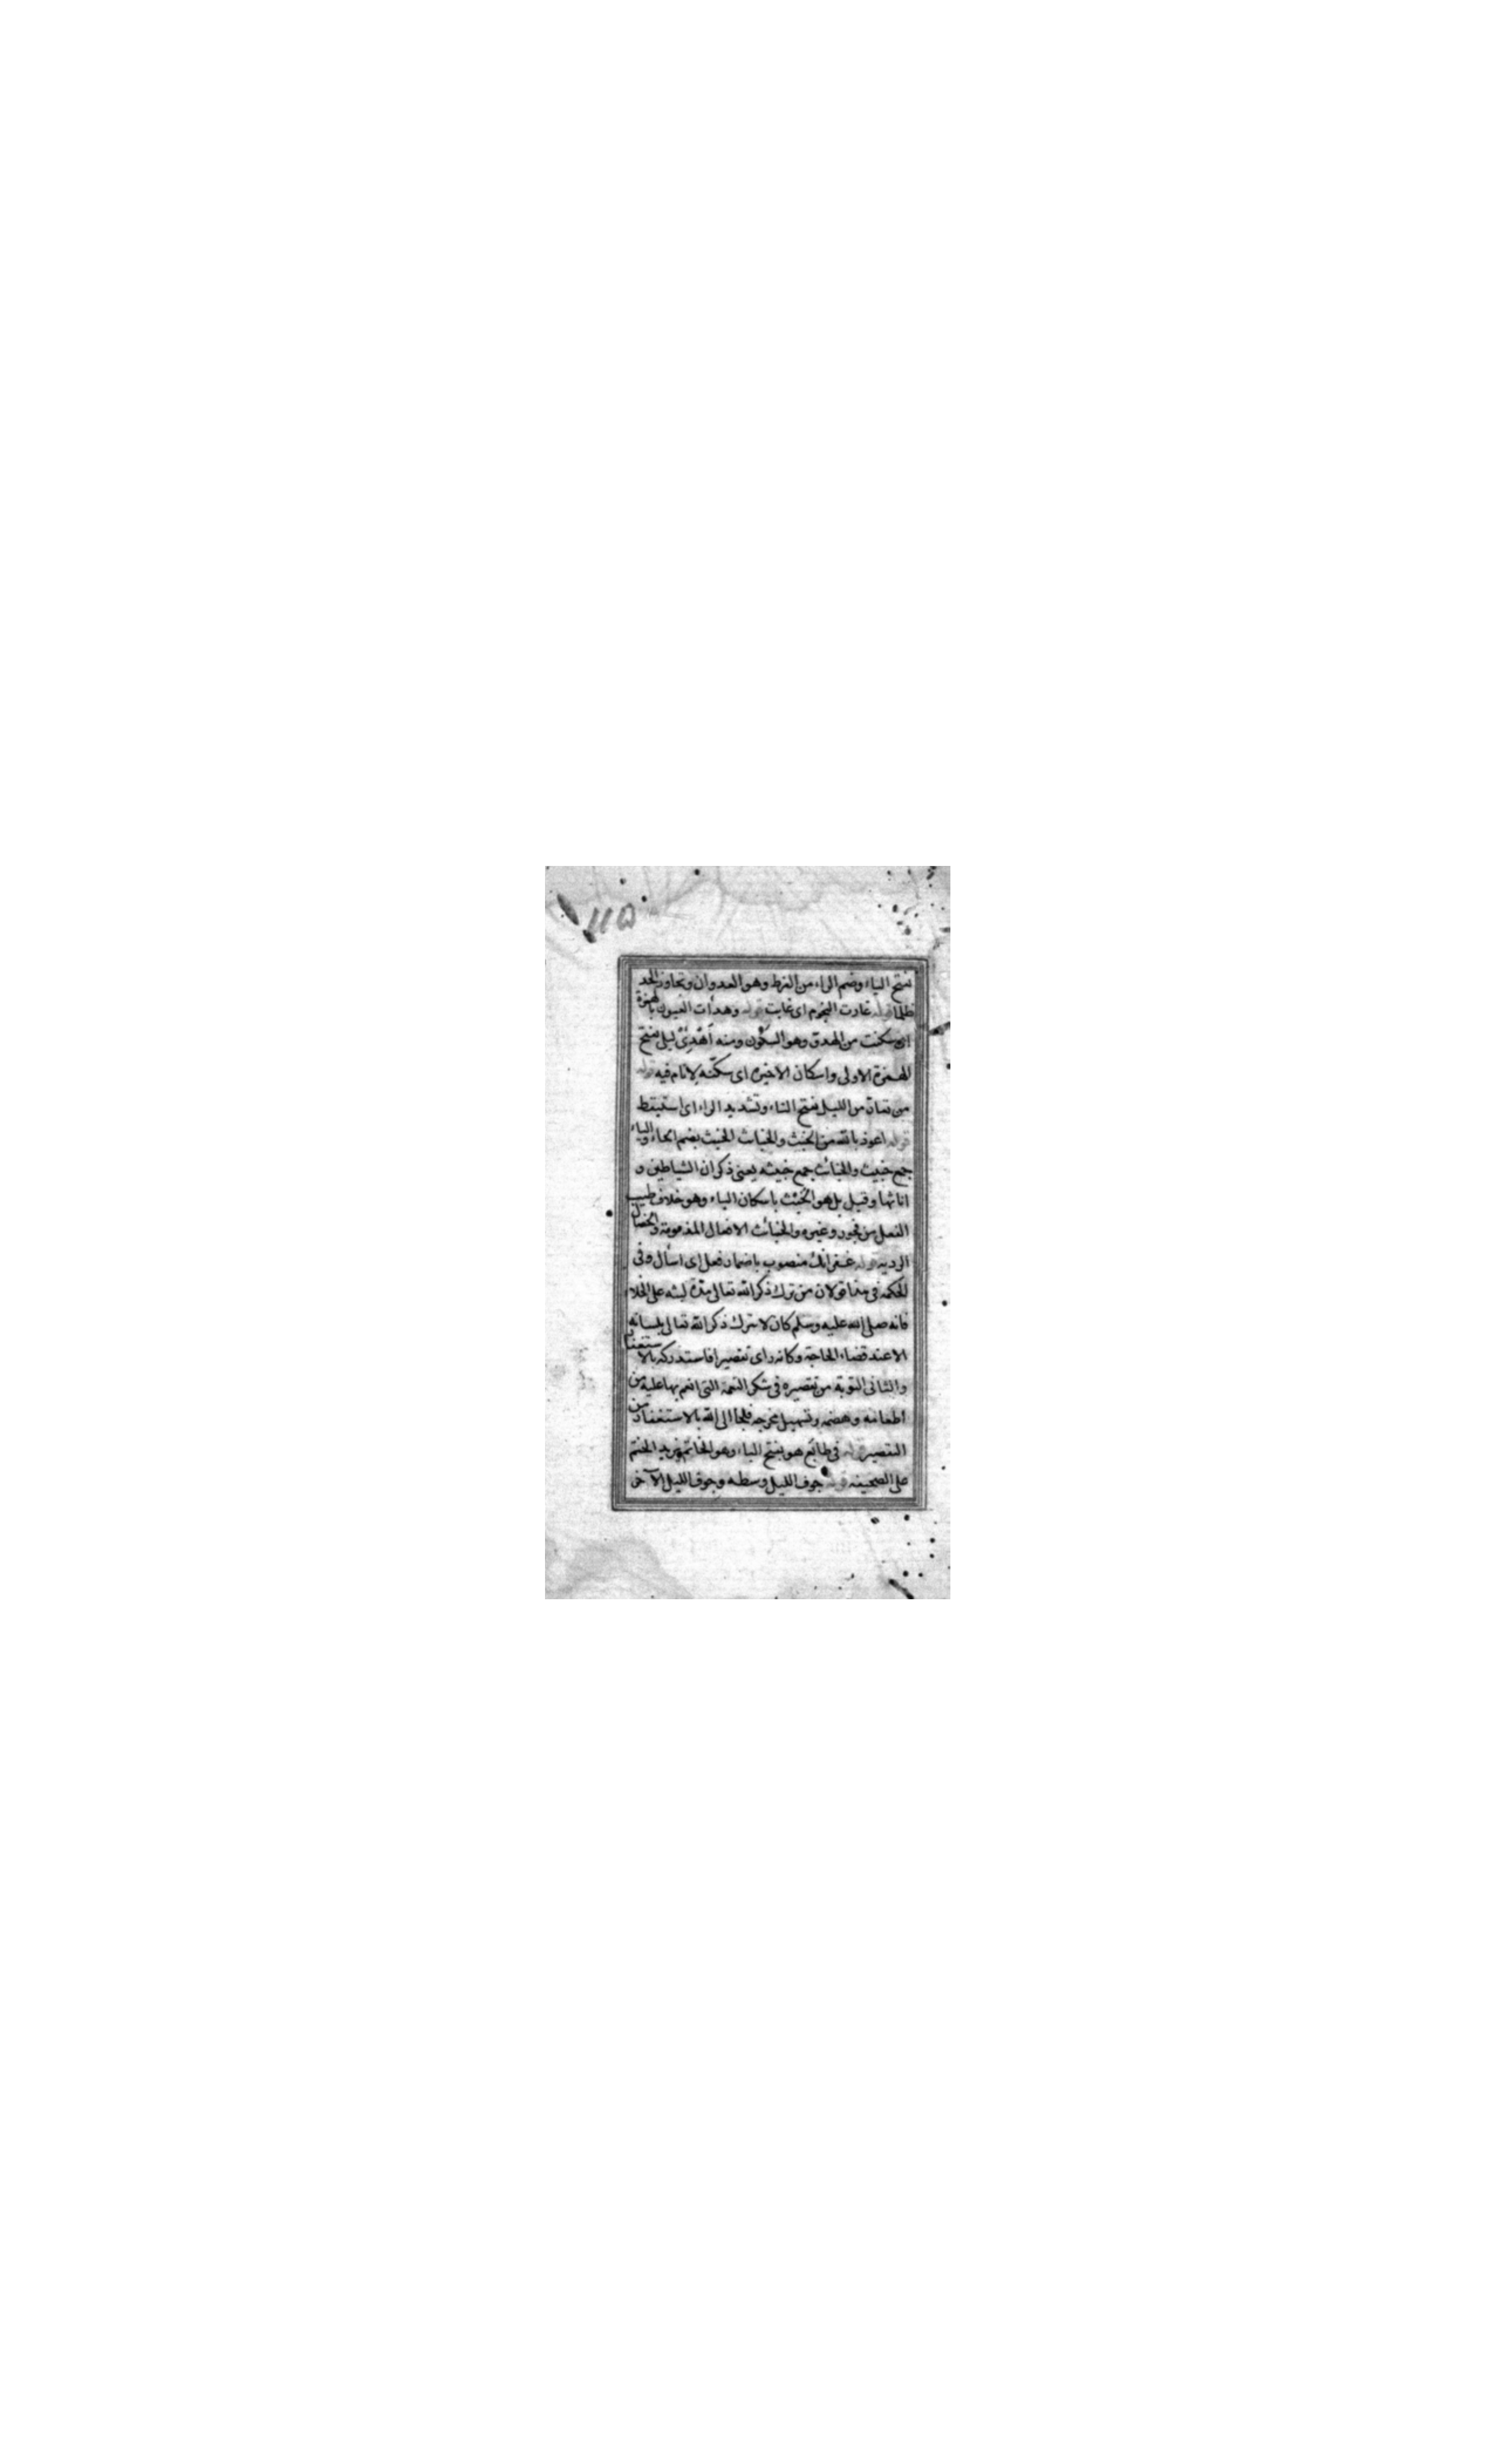 ١١٥
بفتح الياء وضم الراء من الفرط وهو العدوان وتجاوز الحد
ظلما قوله غارت النجوم اى غابت قوله وهدأت العيون بالهمزة
اى سكنت من الهدؤ وهو السكون ومنه أهْدِئْ ليلى بفتح
الهمزة الاولى واسكان الاخيرة اى سكّنه لانام فيه قوله
من تعارّ من الليل بفتح التاء وتشديد الراء اى استيقظ
قوله اعوذ بالله من الخبث والخبائث الخبث بضم الخاء والباء
جمع خبيث والخبائث جمع خبيثه يعنى ذكران الشياطين و
اناثها وقيل بل هو الخبث باسكان الباء وهو خلاف طيب
الفعل من فجور وغيره والخبائث الافعال المذمومة والخصال
الرديه قوله غفرانك منصوب باضمار فعل اى اسأل وفى
الحكمه فى هذا قولان من ترك ذكر الله تعالى مدة لبثه على الخلاء
فانه صلى الله عليه وسلم كان لا يترك ذكر الله تعالى بلسانه
الا عند قضاء الحاجة وكانه راى تقصيرا فاستدركه بالاستغفار
والثانى التوبة من تقصيره فى شكر النعمة التى انعم بها عليه من
اطعامه وهضمه وتسهيل مخرجه فلجأ الى الله بالاستغفار من
التقصير قوله فى طابع هو بفتح الباء وهو الخاتم يريد الختم
على الصحيفه قوله جوف الليل وسطه وجوف الليل الآخر